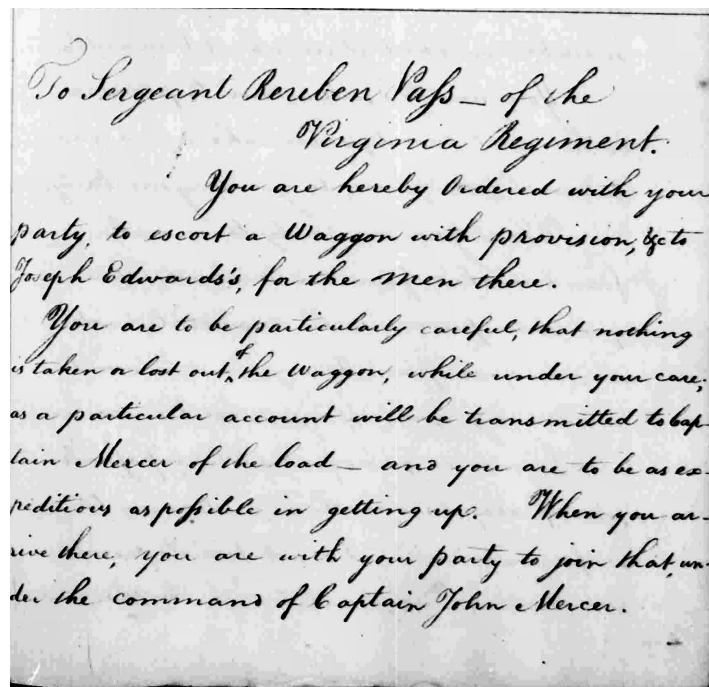 To Sergeant Reuben Vaſs — of the
Virginia Regiment.
You are hereby Ordered with your
party, to escort a Waggon with provision, &c to
Joseph Edwards's, for the men there.
You are to be particularly careful, that nothing
is taken or lost out of the Waggon, while under your care;
as a particular account will be transmitted to Cap-
tain Mercer of the load — and you are to be as ex-
peditious as poſsible in getting up. When you ar-
rive there, you are with your party to join that, un-
der the command of Captain John Mercer.